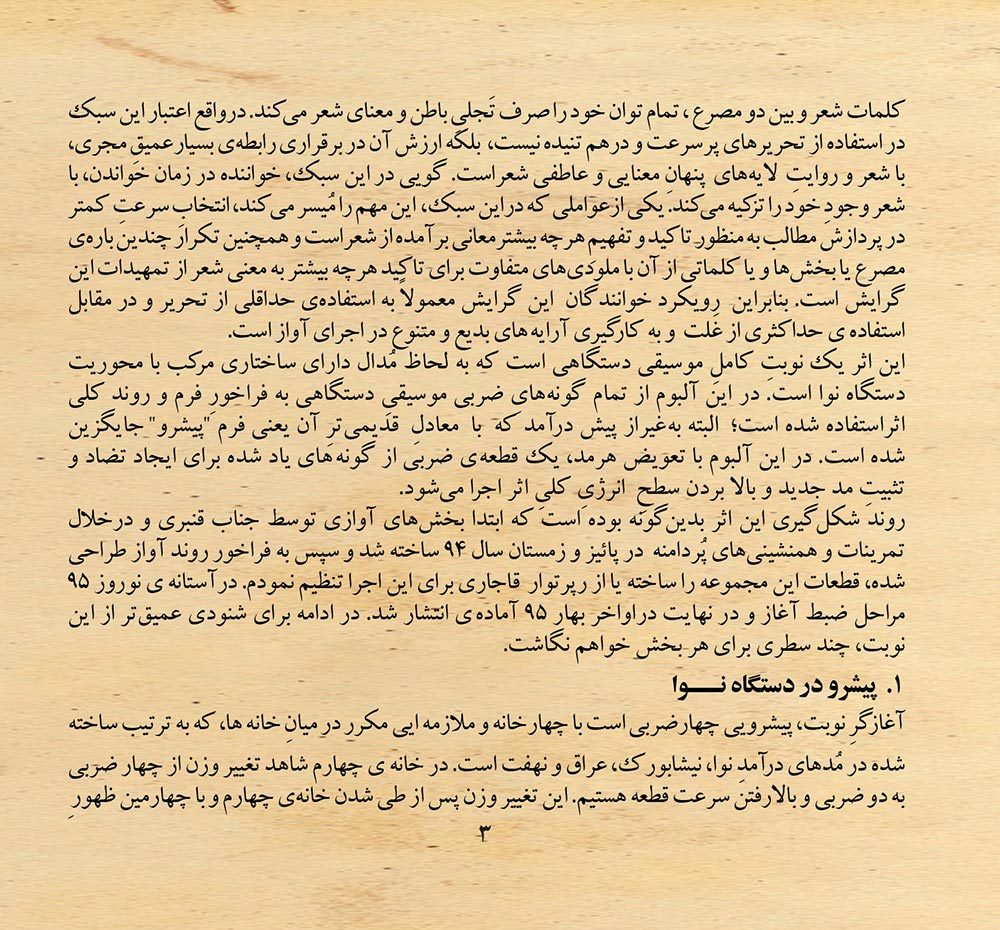 کلمات شعر و بین دو مصرع ، تمام توان خود را صرف تَجلیِ باطن و معنای شعر می‌کند. درواقع اعتبار این سبک
در استفاده از تحریرهای پر سرعت و درهم تنیده نیست، بلکه ارزش آن در برقراری رابطه‌ی بسیار عمیقِ مجری،
با شعر و روایتِ لایه‌های پنهانِ معنایی و عاطفی شعر است. گویی در این سبک، خواننده در زمان خواندن، با
شعر وجودِ خود را تزکیه می‌کند. یکی از عواملی که در این سبک، این مهم را مُیسر می‌کند، انتخابِ سرعتِ کمتر
در پردازش مطالب به منظور تاکید و تفهیمِ هرچه بیشتر معانی برآمده از شعر است و همچنین تکرار چندین باره‌ی
مصرع یا بخش‌ها و یا کلماتی از آن با ملودی‌های متفاوت برای تاکید هرچه بیشتر به معنی شعر از تمهیدات این
گرایش است. بنابراین رویکرد خوانندگان این گرایش معمولاً به استفاده‌ی حداقلی از تحریر و در مقابل
استفاده ی حداکثری از غلت و به کارگیری آرایه‌های بدیع و متنوع در اجرای آواز است.
این اثر یک نوبتِ کاملِ موسیقی دستگاهی است که به لحاظ مُدال دارای ساختاری مرکب با محوریت
دستگاه نوا است. در این آلبوم از تمام گونه‌های ضربی موسیقی دستگاهی به فراخورِ فرم و روند کلی
اثراستفاده شده است؛ البته به‌غیراز پیش درآمد که با معادلِ قدیمی‌ترِ آن یعنی فرم "پیشرو" جایگزین
شده است. در این آلبوم با تعویض هرمد، یک قطعه‌ی ضربی از گونه‌های یاد شده برای ایجاد تضاد و
تثبیتِ مد جدید و بالا بردن سطحِ انرژیِ کلیِ اثر اجرا می‌شود.
روند شکل‌گیری این اثر بدین‌گونه بوده است که ابتدا بخش‌های آوازی توسط جناب قنبری و درخلال
تمرینات و همنشینی‌های پُردامنه در پائیز و زمستان سال ۹۴ ساخته شد و سپس به فراخور روند آواز طراحی
شده، قطعات این مجموعه را ساخته یا از رپرتوار قاجاری برای این اجرا تنظیم نمودم. درآستانه ی نوروز ۹۵
مراحل ضبط آغاز و در نهایت دراواخر بهار ۹۵ آماده‌ی انتشار شد. در ادامه برای شنودی عمیق‌تر از این
نوبت، چند سطری برای هر بخش خواهم نگاشت.
۱. پیشرو در دستگاه نـــوا
آغازگرِ نوبت، پیشرویی چهارضربی است با چهارخانه و ملازمه ایی مکرر در میانِ خانه ها، که به ترتیب ساخته
شده در مُدهای درآمدِ نوا، نیشابورک، عراق و نهفت است. در خانه ی چهارم شاهد تغییر وزن از چهار ضربی
به دو ضربی و بالارفتنِ سرعت قطعه هستیم. این تغییر وزن پس از طی شدن خانه‌ی چهارم و با چهارمین ظهورِ
۳